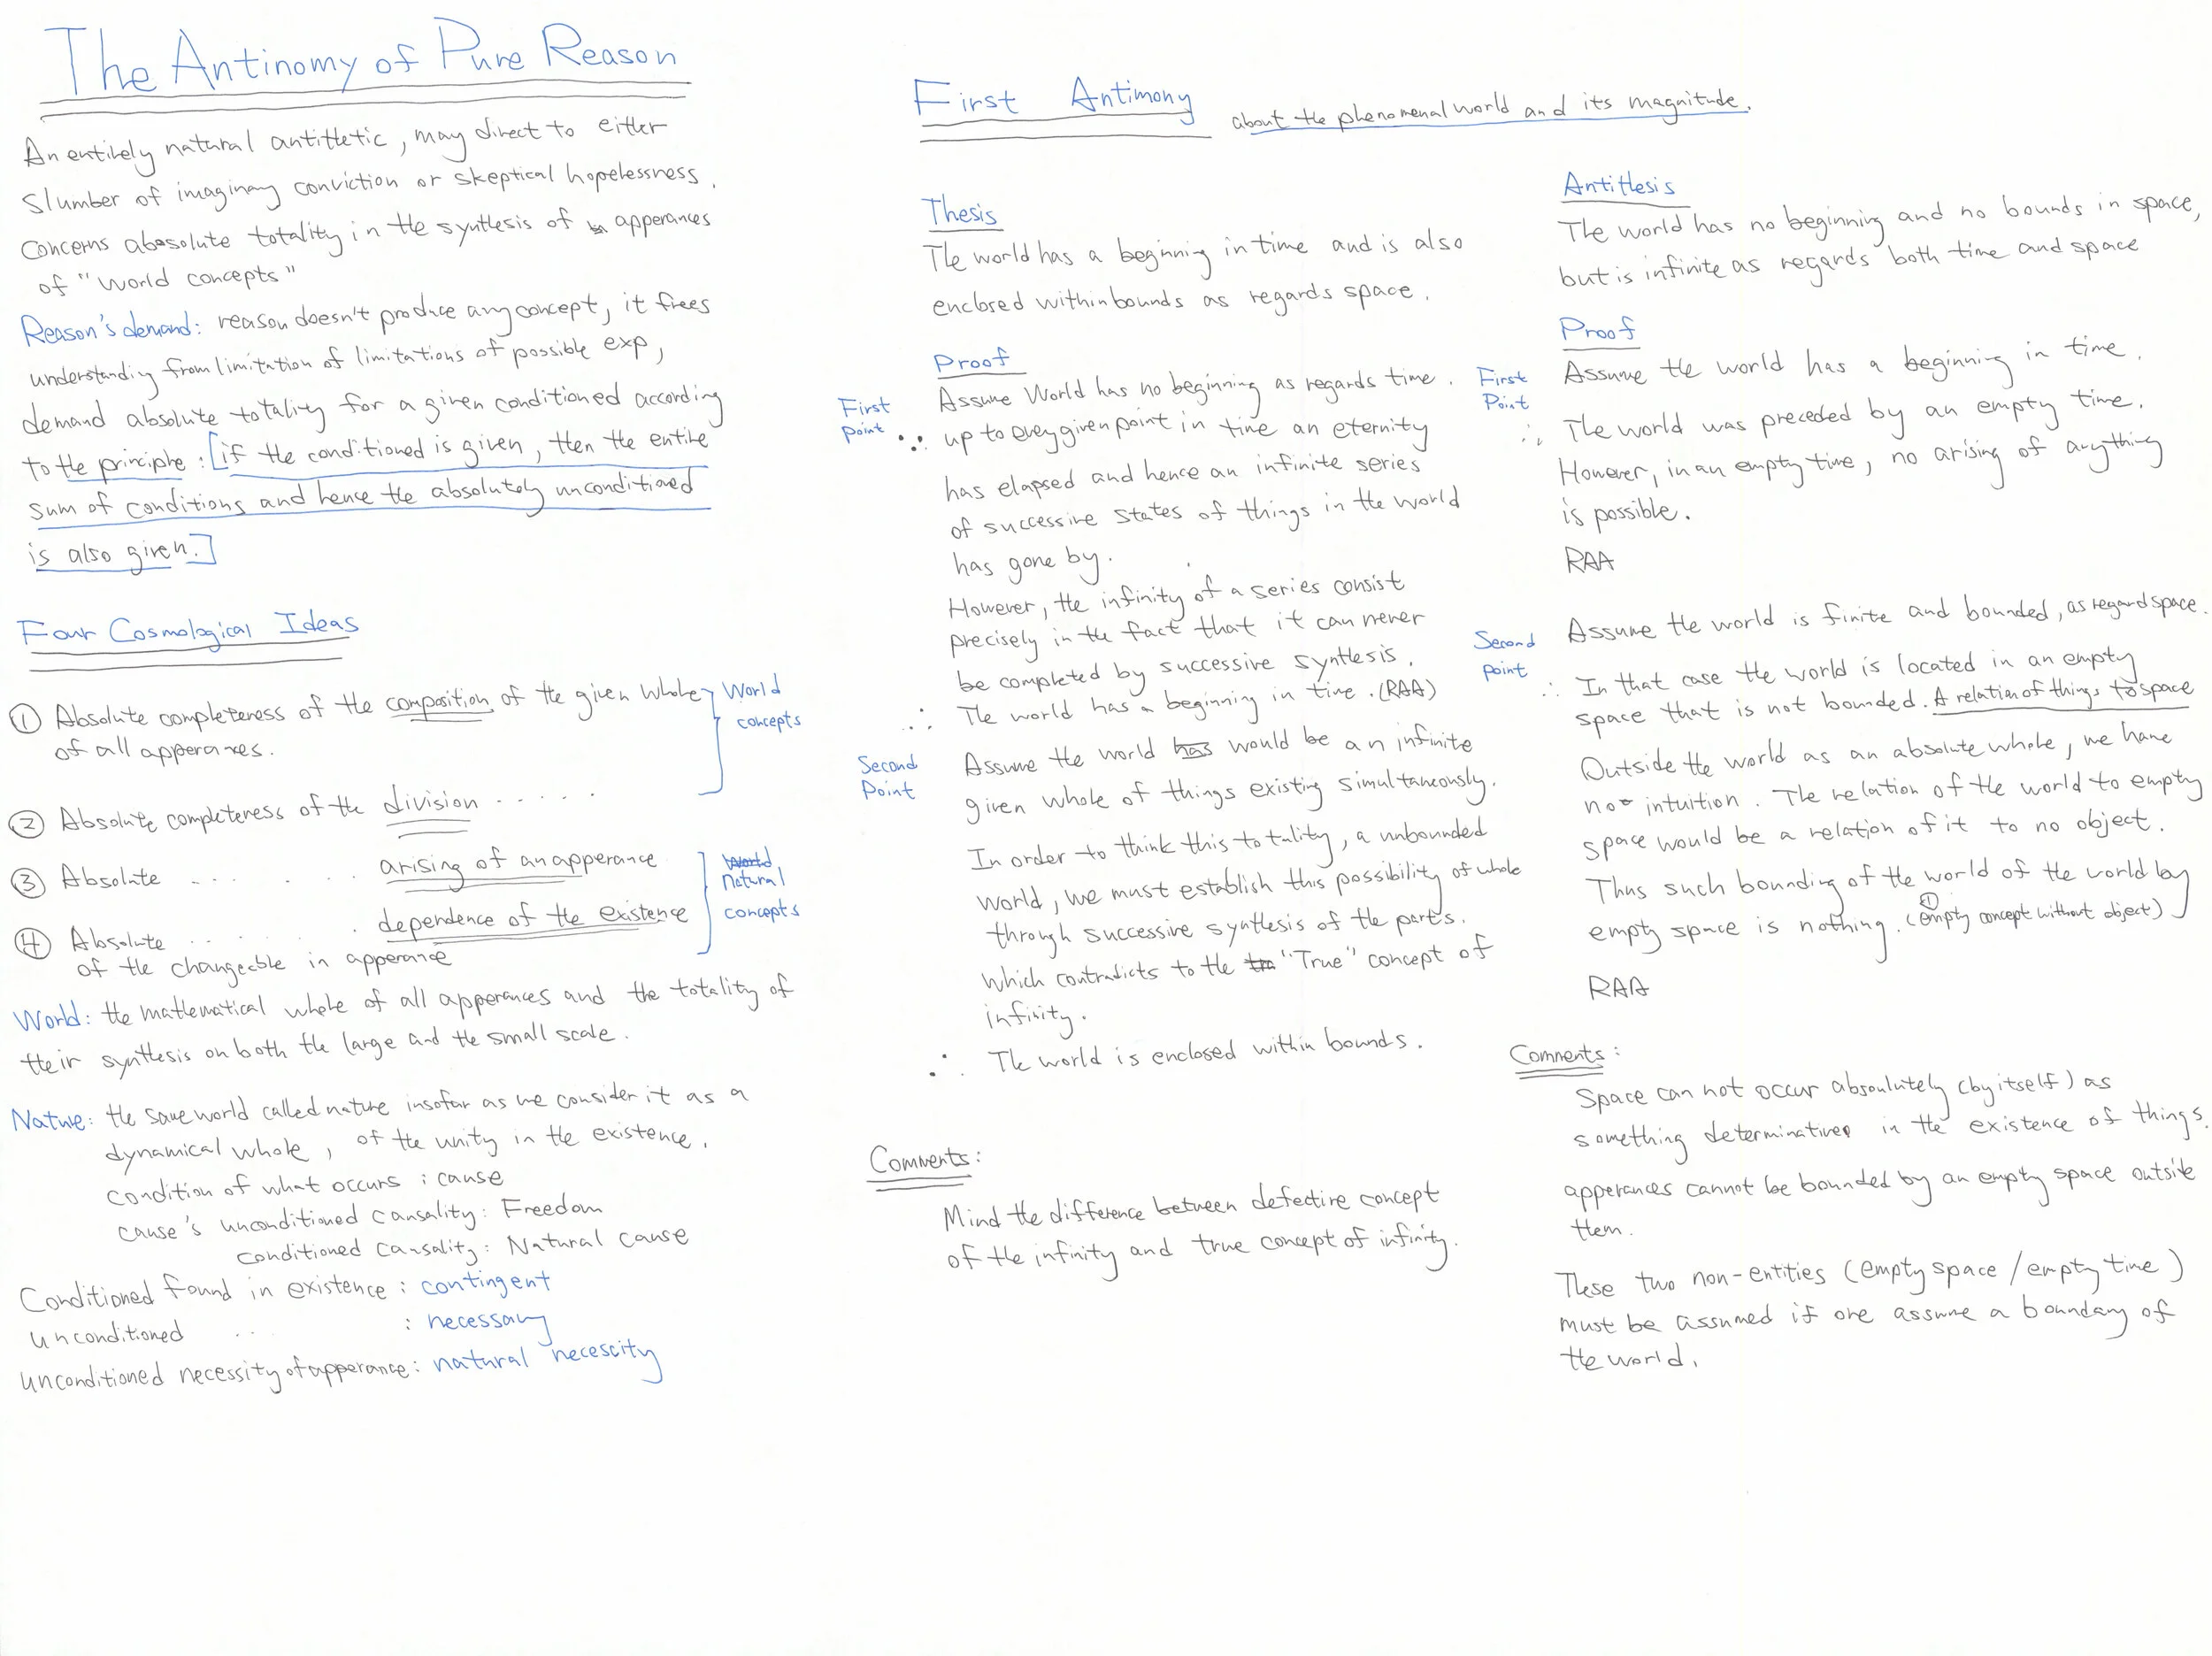 The Antinomy of Pure Reason
An entirely natural antithetic, may direct to either
slumber of imaginary conviction or skeptical hopelessness.
Concerns absolute totality in the synthesis of apperances
of "world concepts"
Reason's demand: reason doesn't produce any concept, it frees
understanding from limitation of limitations of possible exp,
demand absolute totality for a given conditioned according
to the principle: [if the conditioned is given, then the entire
sum of conditions and hence the absolutely unconditioned
is also given.]
Four Cosmological Ideas
① Absolute completeness of the composition of the given whole
of all apperances.
World
concepts
② Absolute completeness of the division .....
③ Absolute .. . . . . arising of an apperance
④ Absolute .. . . . dependence of the existence
of the changeable in apperance
World
natural
concepts
World: the mathematical whole of all apperances and the totality of
their synthesis on both the large and the small scale.
Nature: the same world called nature insofar as we consider it as a
dynamical whole, of the unity in the existence.
condition of what occurs : cause
cause's unconditioned causality: Freedom
conditioned causality: Natural cause
Conditioned found in existence : contingent
unconditioned .. : necessary
unconditioned necessity of apperance: natural necescity
First Antimony about the phenomenal world and its magnitude.
Thesis
The world has a beginning in time and is also
enclosed within bounds as regards space.
Proof
First
point
Assume World has no beginning as regards time.
∴ up to every given point in time an eternity
has elapsed and hence an infinite series
of successive states of things in the world
has gone by.
However, the infinity of a series consist
precisely in the fact that it can never
be completed by successive synthesis.
∴ The world has a beginning in time. (RAA)
Second
Point
Assume the world has would be an infinite
given whole of things existing simultaneously.
In order to think this totality, a unbounded
world, we must establish this possibility of whole
through successive synthesis of the parts.
which contradicts to the "True" concept of
infinity.
∴ The world is enclosed within bounds.
Comments:
Mind the difference between defective concept
of the infinity and true concept of infinity.
Antithesis
The world has no beginning and no bounds in space,
but is infinite as regards both time and space
Proof
First
Point
Assume the world has a beginning in time.
∴ The world was preceded by an empty time.
However, in an empty time, no arising of anything
is possible.
RAA
Second
point
Assume the world is finite and bounded, as regard space.
∴ In that case the world is located in an empty
space that is not bounded. A relation of things to space
Outside the world as an absolute whole, we have
no intuition. The relation of the world to empty
space would be a relation of it to no object.
Thus such bounding of the world of the world by
empty space is nothing. (① empty concept without object)
RAA
Comments:
Space can not occur absolutely (by itself) as
something determinative in the existence of things.
apperances cannot be bounded by an empty space outside
them.
These two non-entities (empty space / empty time)
must be assumed if one assume a boundary of
the world.